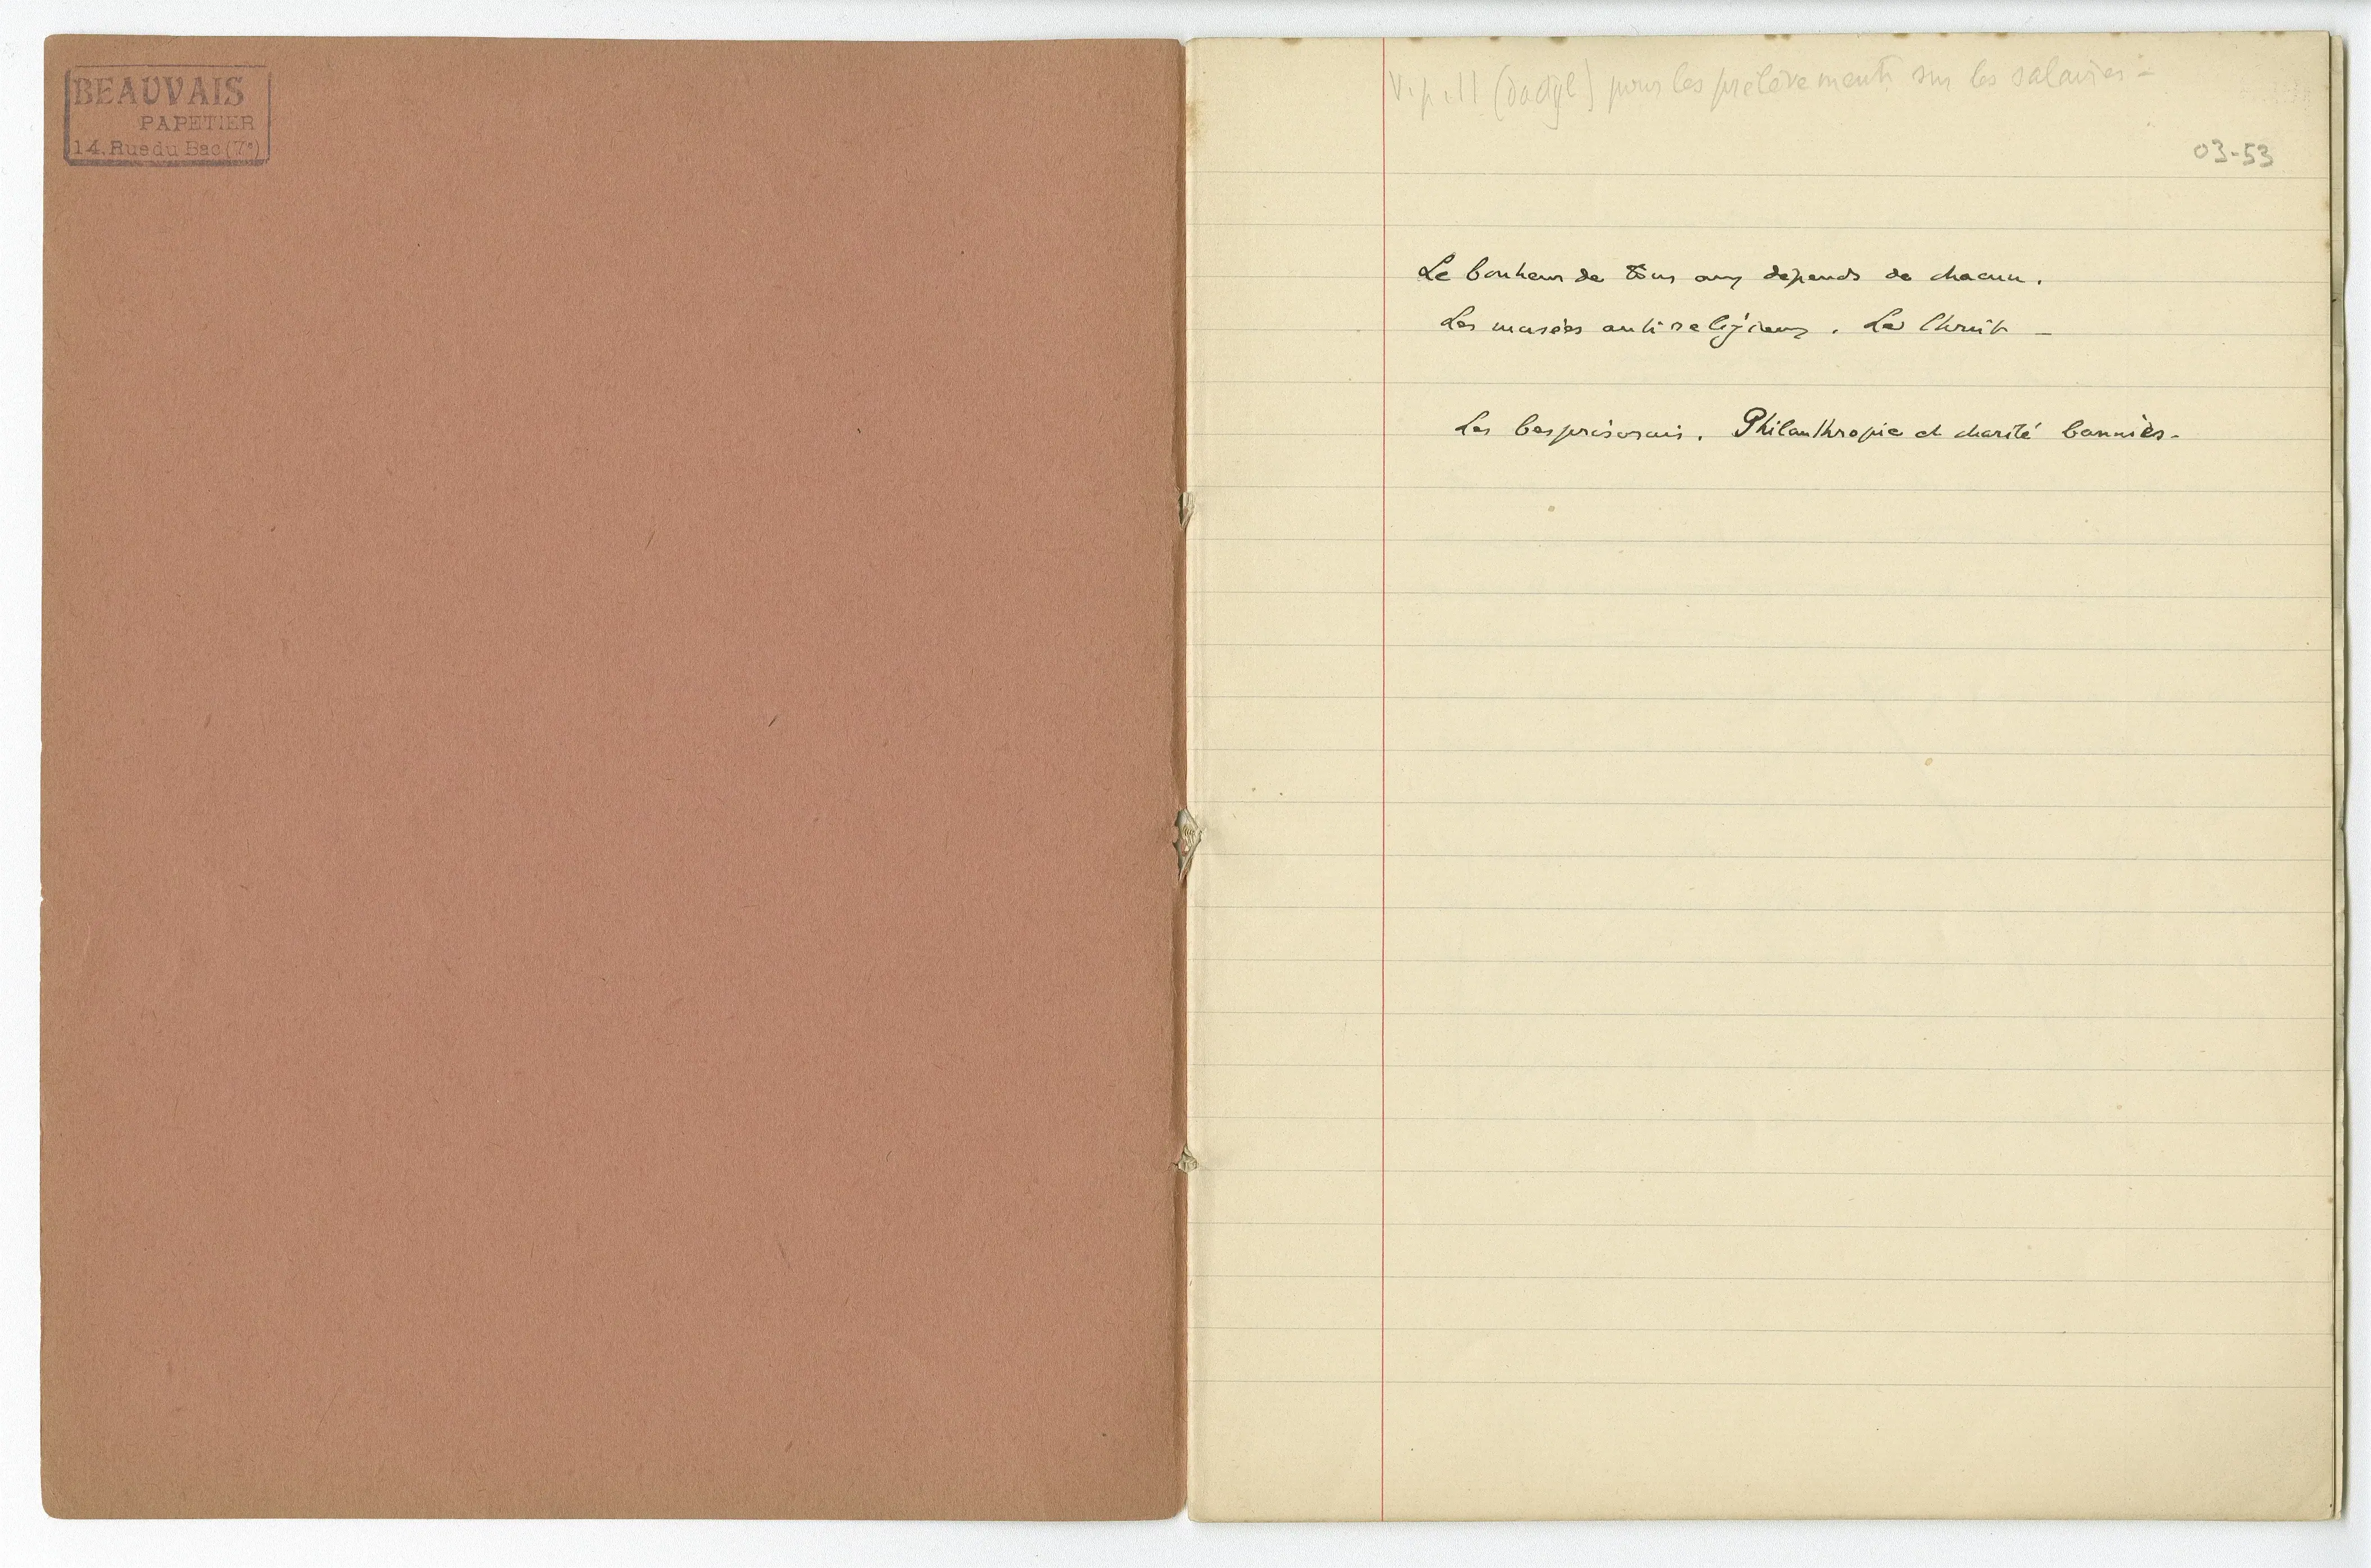 BEAUVAIS
PAPETIER
14, Rue du Bac (7e)
V. p. 11 (dactyl) pour les prélèvements sur les salaires -
03-53
Le bonheur de tous dépends de chacun.
Les musées antireligieux. Le Christ -
Les besprisornis. Philanthropie et charité bannies.